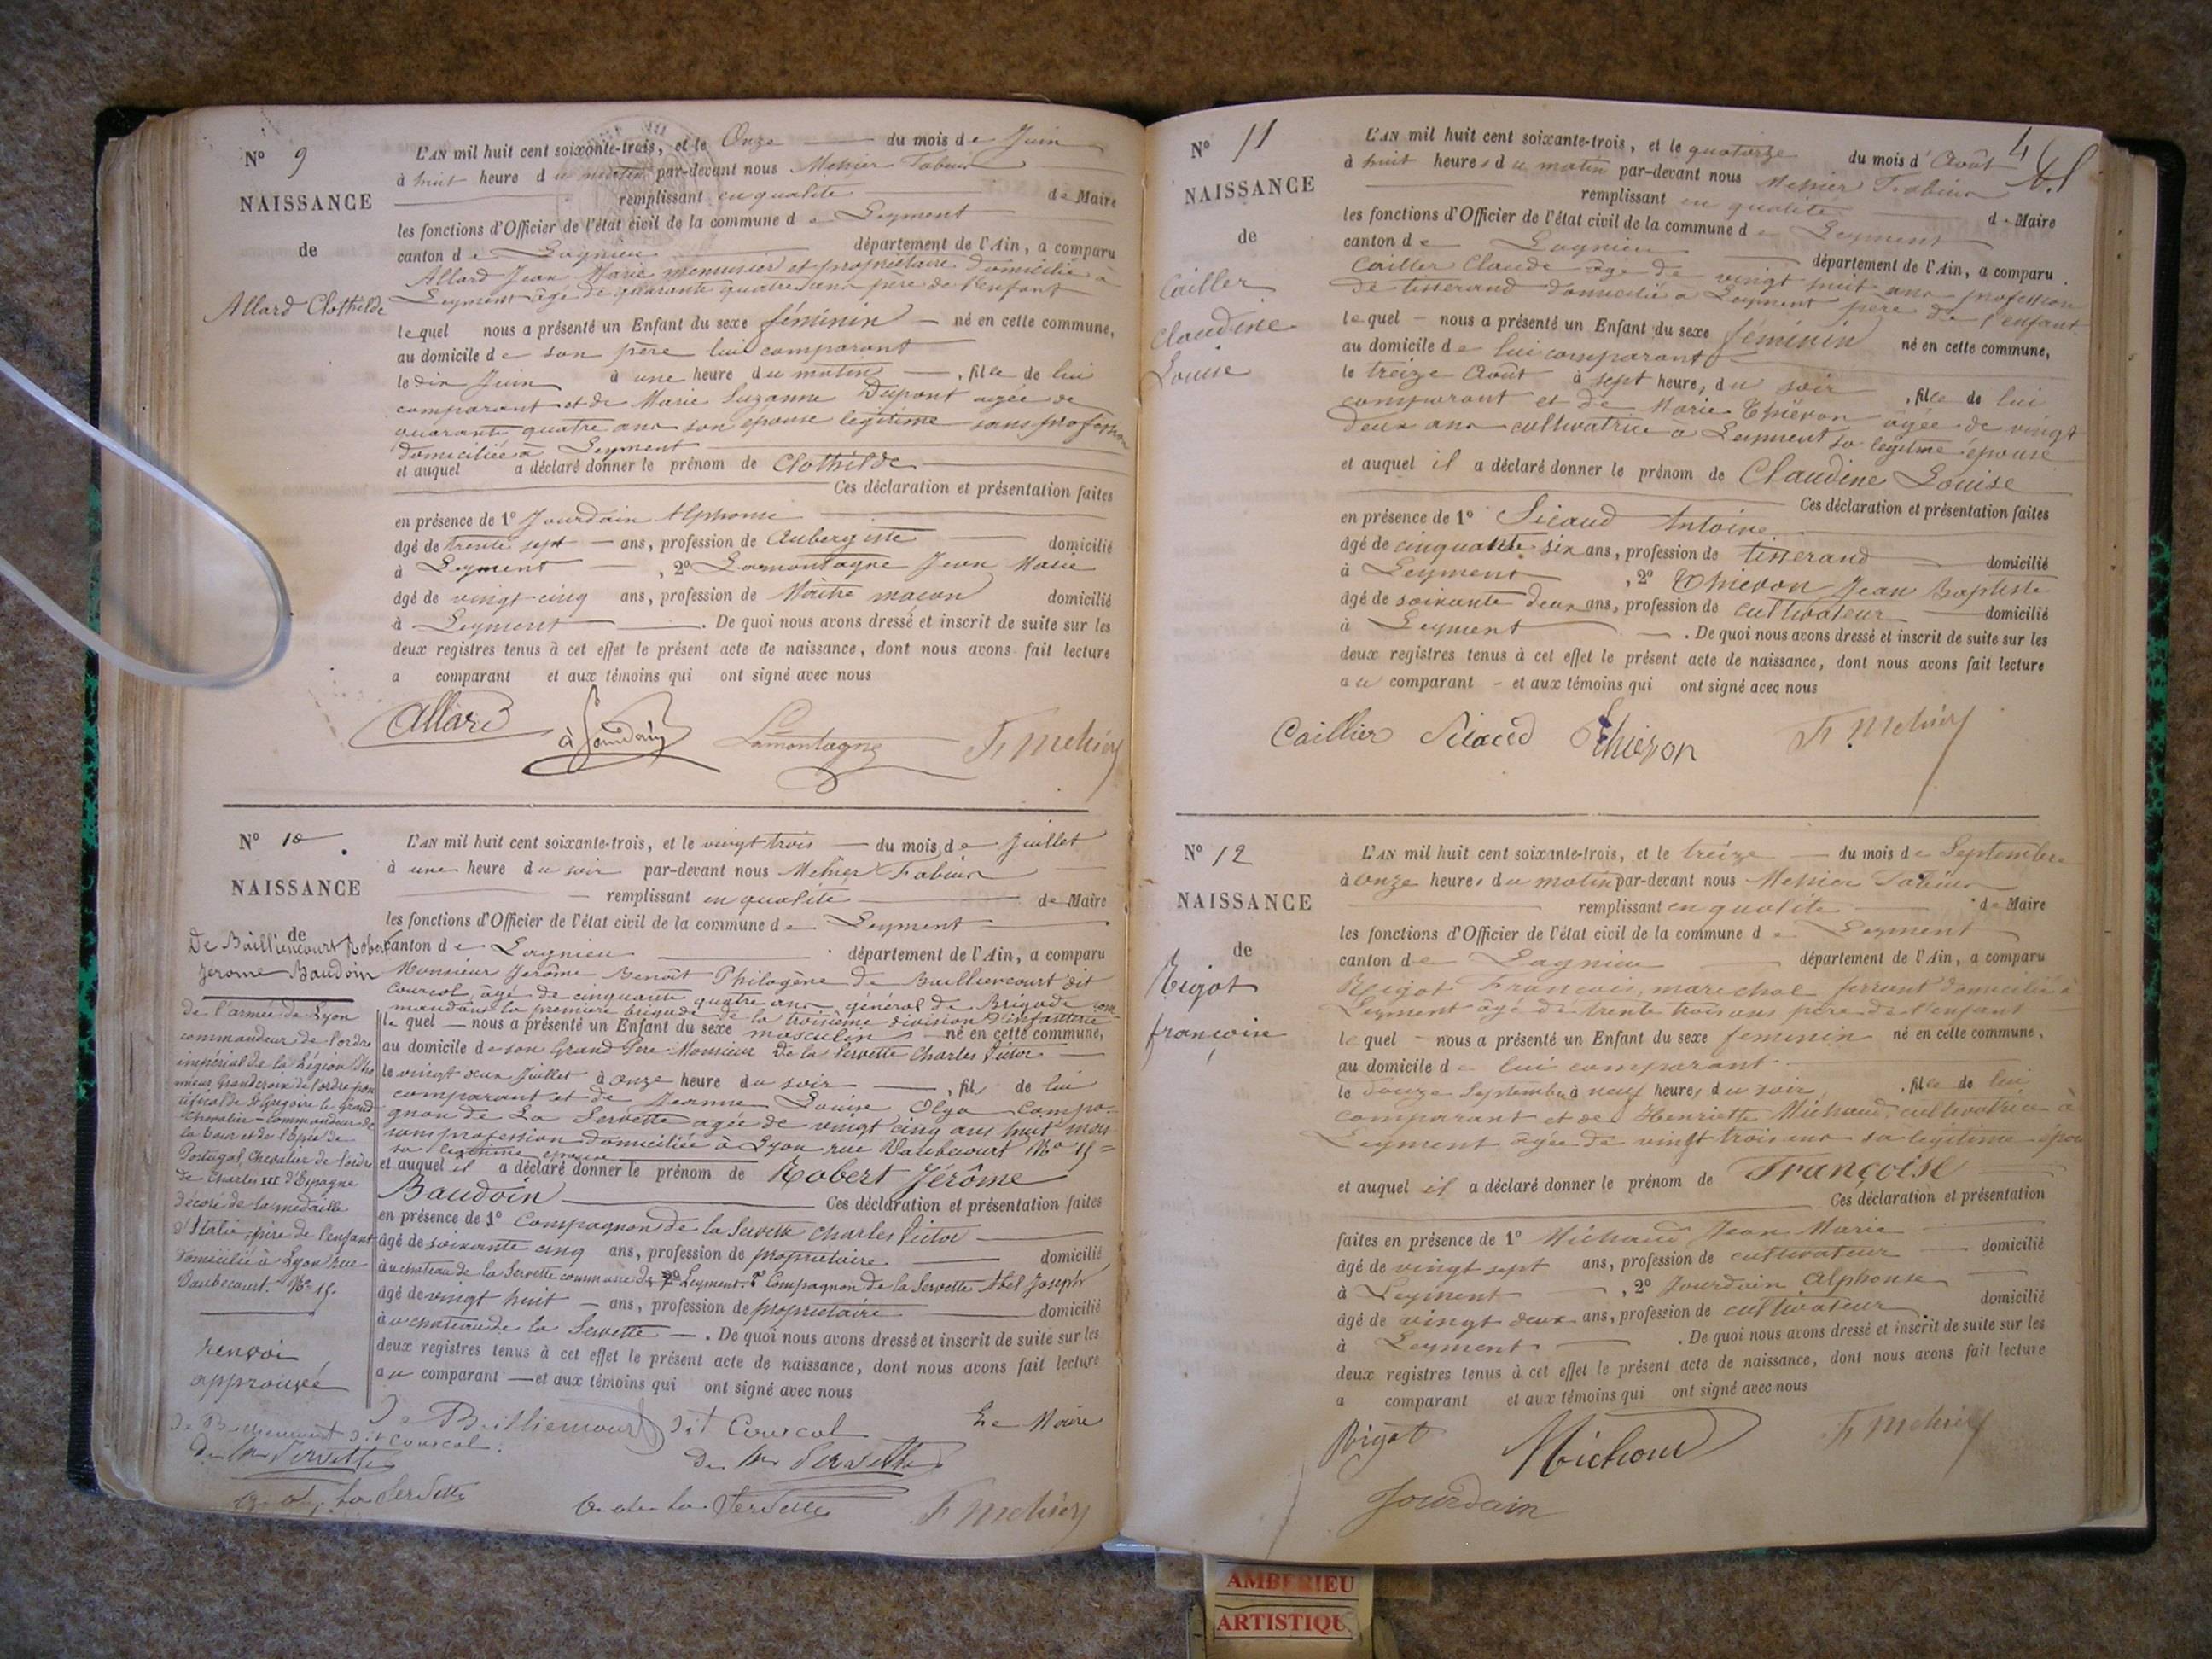 N° 9
NAISSANCE
de
Allard Clothilde
L'AN mil huit cent soixante-trois, et le Onze du mois de Juin
à huit heure du matin par-devant nous Mehier Fabien
remplissant en qualité de Maire
les fonctions d'Officier de l'état civil de la commune de Leyment
canton de Lagnieu département de l'Ain, a comparu
Allard Jean Marie menuisier et propriétaire domicilié à
Leyment âgé de quarante quatre ans père de l'enfant
lequel nous a présenté un Enfant du sexe féminin né en cette commune,
au domicile de son père lui comparant
le dix Juin à une heure du matin, fille de lui
comparant et de Marie Suzanne Dupont agée de
quarante quatre ans son épouse légitime sans profession
domiciliée à Leyment
et auquel a déclaré donner le prénom de Clothilde
Ces déclaration et présentation faites
en présence de 1° Jourdain Alphonse
âgé de trente sept ans, profession de Aubergiste domicilié
à Leyment, 2° Lamontagne Jean Marie
âgé de vingt cinq ans, profession de Maître maçon domicilié
à Leyment. De quoi nous avons dressé et inscrit de suite sur les
deux registres tenus à cet effet le présent acte de naissance, dont nous avons fait lecture
a comparant et aux témoins qui ont signé avec nous
Allard à Jourdain Lamontagne F Mehier
N° 10
NAISSANCE
de
De Bailliencourt Robert
Jérome Baudoin
L'AN mil huit cent soixante-trois, et le vingt trois du mois de Juillet
à une heure du soir par-devant nous Mehier Fabien
remplissant en qualité de Maire
les fonctions d'Officier de l'état civil de la commune de Leyment
canton de Lagnieu département de l'Ain, a comparu
Monsieur Jerôme Benoît Philogène de Bailliencourt dit
Courcol, âgé de cinquante quatre ans général de Brigade com
mandant la premiere brigade de la troisième division d'infanterie
lequel nous a présenté un Enfant du sexe masculin né en cette commune,
au domicile de son Grand Pere Monsieur De la Servette Charles Victor
le vingt deux Juillet à onze heure du soir, fils de lui
comparant et de Jeanne Louise Olga Compa-
gnon de La Servette agée de vingt cinq ans huit mois
sans profession domiciliée à Lyon rue Vaubecourt No 15
sa légitime épouse
et auquel il a déclaré donner le prénom de Robert Jérôme
Baudoin Ces déclaration et présentation faites
en présence de 1° Compagnon de la Servette Charles Victor
âgé de soixante cinq ans, profession de propriétaire domicilié
au chateau de la Servette commune de Leyment. 2° Compagnon de la Servette Abel Joseph
âgé de vingt huit ans, profession de propriétaire domicilié
au chateau de la Servette. De quoi nous avons dressé et inscrit de suite sur les
deux registres tenus à cet effet le présent acte de naissance, dont nous avons fait lecture
au comparant et aux témoins qui ont signé avec nous
de l'armée de Lyon
commandeur de l'ordre
impérial de la Légion d'ho
nneur Grand croix de l'ordre pon
tifical de St Grégoire le Grand
Chevalier Commandeur de
la Tour et de l'Epée de
Portugal, Chevalier de l'ordre
de Charles III d'Espagne
décoré de la médaille
d'Italie, père de l'enfant
domicilié à Lyon rue
Vaubecourt. No 15.
renvoi
approuvé
De Bailliencourt dit Courcol Le Maire
De Bailliencourt dit Courcol.
De la Servette De la Servette
de la Servette de la Servette F Mehier
N° 11
NAISSANCE
de
Cailler
Claudine
Louise
L'AN mil huit cent soixante-trois, et le quatorze du mois d'Août
à huit heures du matin par-devant nous Mehier Fabien
remplissant en qualité de Maire
les fonctions d'Officier de l'état civil de la commune de Leyment
canton de Lagnieu département de l'Ain, a comparu
Cailler Claude âgé de vingt huit ans profession
de tisserand domicilié à Leyment père de l'enfant
lequel nous a présenté un Enfant du sexe féminin né en cette commune,
au domicile de lui comparant
le treize Août à sept heure, du soir, fille de lui
comparant et de Marie Thieron âgée de vingt
deux ans cultivatrice à Leyment sa légitime épouse
et auquel il a déclaré donner le prénom de Claudine Louise
Ces déclaration et présentation faites
en présence de 1° Sicaud Antoine
âgé de cinquante six ans, profession de tisserand domicilié
à Leyment, 2° Thieron Jean Baptiste
âgé de soixante deux ans, profession de cultivateur domicilié
à Leyment. De quoi nous avons dressé et inscrit de suite sur les
deux registres tenus à cet effet le présent acte de naissance, dont nous avons fait lecture
au comparant et aux témoins qui ont signé avec nous
Caillier Sicaud Thieron F Mehier
N° 12
NAISSANCE
de
Rigot
françoise
L'AN mil huit cent soixante-trois, et le treize du mois de Septembre
à onze heures du matin par-devant nous Mehier Fabien
remplissant en qualité de Maire
les fonctions d'Officier de l'état civil de la commune de Leyment
canton de Lagnieu département de l'Ain, a comparu
Rigot Francois, marechal ferrant domicilié à
Leyment âgé de trente trois ans père de l'enfant
lequel nous a présenté un Enfant du sexe feminin né en cette commune,
au domicile de lui comparant
le douze Septembre à neuf heures du soir, fille de lui
comparant et de Henriette Michaud, cultivatrice à
Leyment âgée de vingt trois ans sa légitime épou
et auquel il a déclaré donner le prénom de Françoise
Ces déclaration et présentation
faites en présence de 1° Michaud Jean Marie
âgé de vingt sept ans, profession de cultivateur domicilié
à Leyment, 2° Jourdain Alphonse
âgé de vingt deux ans, profession de cultivateur domicilié
à Leyment. De quoi nous avons dressé et inscrit de suite sur les
deux registres tenus à cet effet le présent acte de naissance, dont nous avons fait lecture
a comparant et aux témoins qui ont signé avec nous
Rigot Michaud F Mehier
Jourdain
AMBERIEU
ARTISTIQU